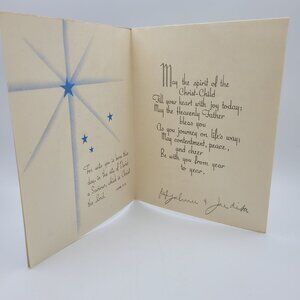 For unto you is born this
day in the city of David
a Saviour, which is Christ
the Lord.
May the spirit of the
Christ-Child
Fill your heart with joy today;
May the Heavenly Father
bless you
As you journey on life's way;
May contentment, peace,
and cheer
Be with you from year
to year.